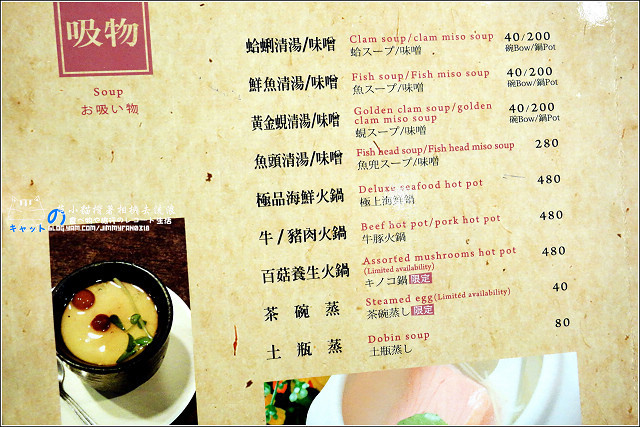 吸物
Soup
お吸い物
蛤蜊清湯/味噌 Clam soup/clam miso soup 40/200
蛤スープ/味噌 碗Bow/鍋Pot
鮮魚清湯/味噌 Fish soup/Fish miso soup 40/200
魚スープ/味噌 碗Bow/鍋Pot
黃金蜆清湯/味噌 Golden clam soup/golden clam miso soup 40/200
蜆スープ/味噌 碗Bow/鍋Pot
魚頭清湯/味噌 Fish head soup/Fish head miso soup 280
魚兜スープ/味噌
極品海鮮火鍋 Deluxe seafood hot pot 480
極上海鮮鍋
牛/豬肉火鍋 Beef hot pot/pork hot pot 480
牛豚火鍋
百菇養生火鍋 Assorted mushrooms hot pot 480
(Limited availability)
キノコ鍋 限定
茶碗蒸 Steamed egg (Limited availability) 40
茶碗蒸し 限定
土瓶蒸 Dobin soup 80
土瓶蒸し
キャットの
BLOG.YAM.COM/JIMMYFAN0318